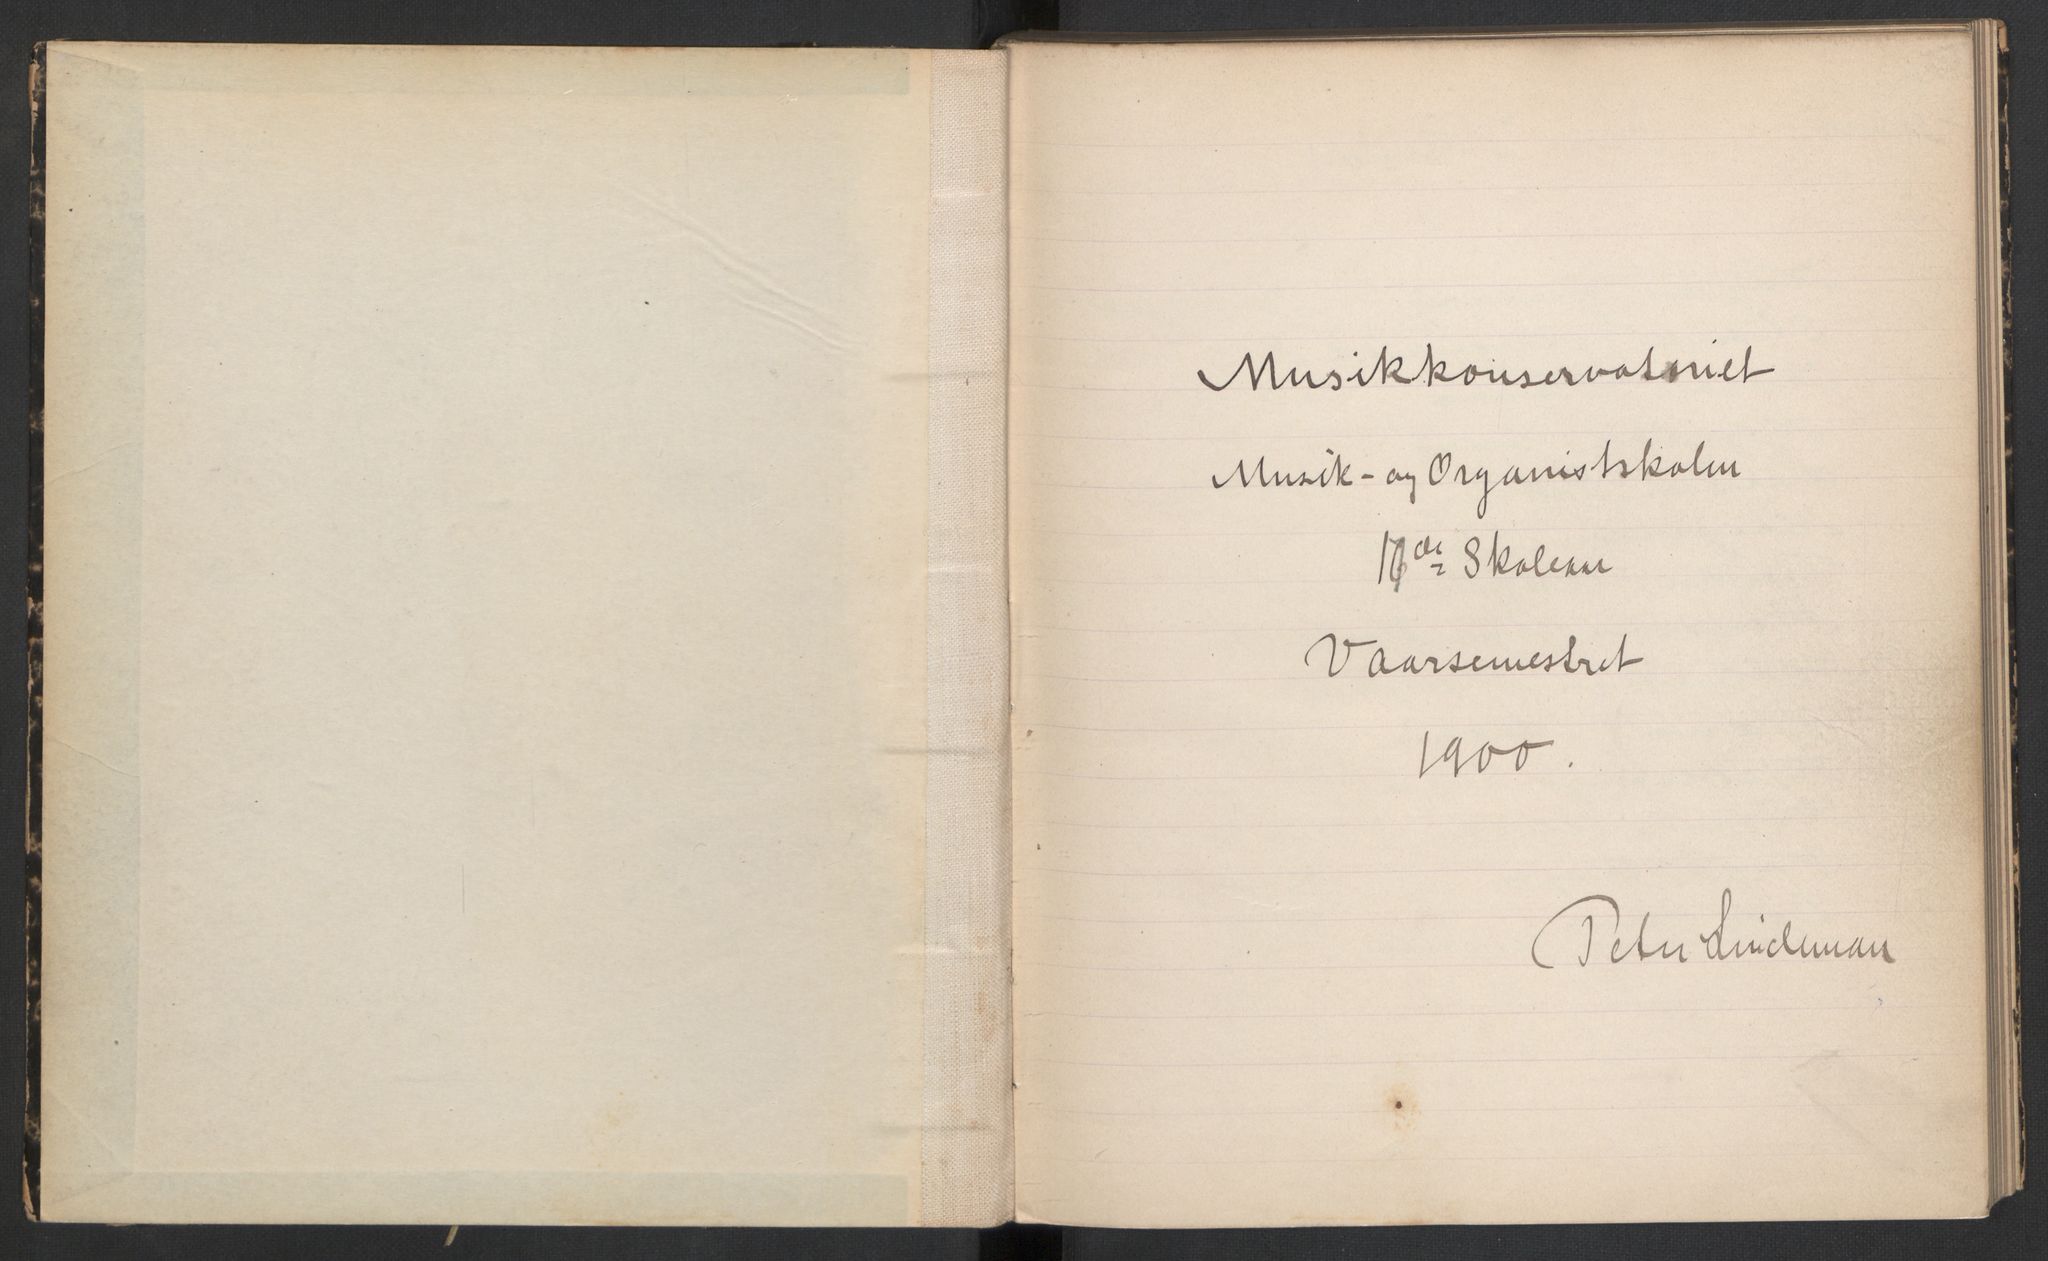 Musikkonservatoriet
Musik- og Organistskolen
de Skoleaar
Vaarsemestret
1900.
Peter Lindeman